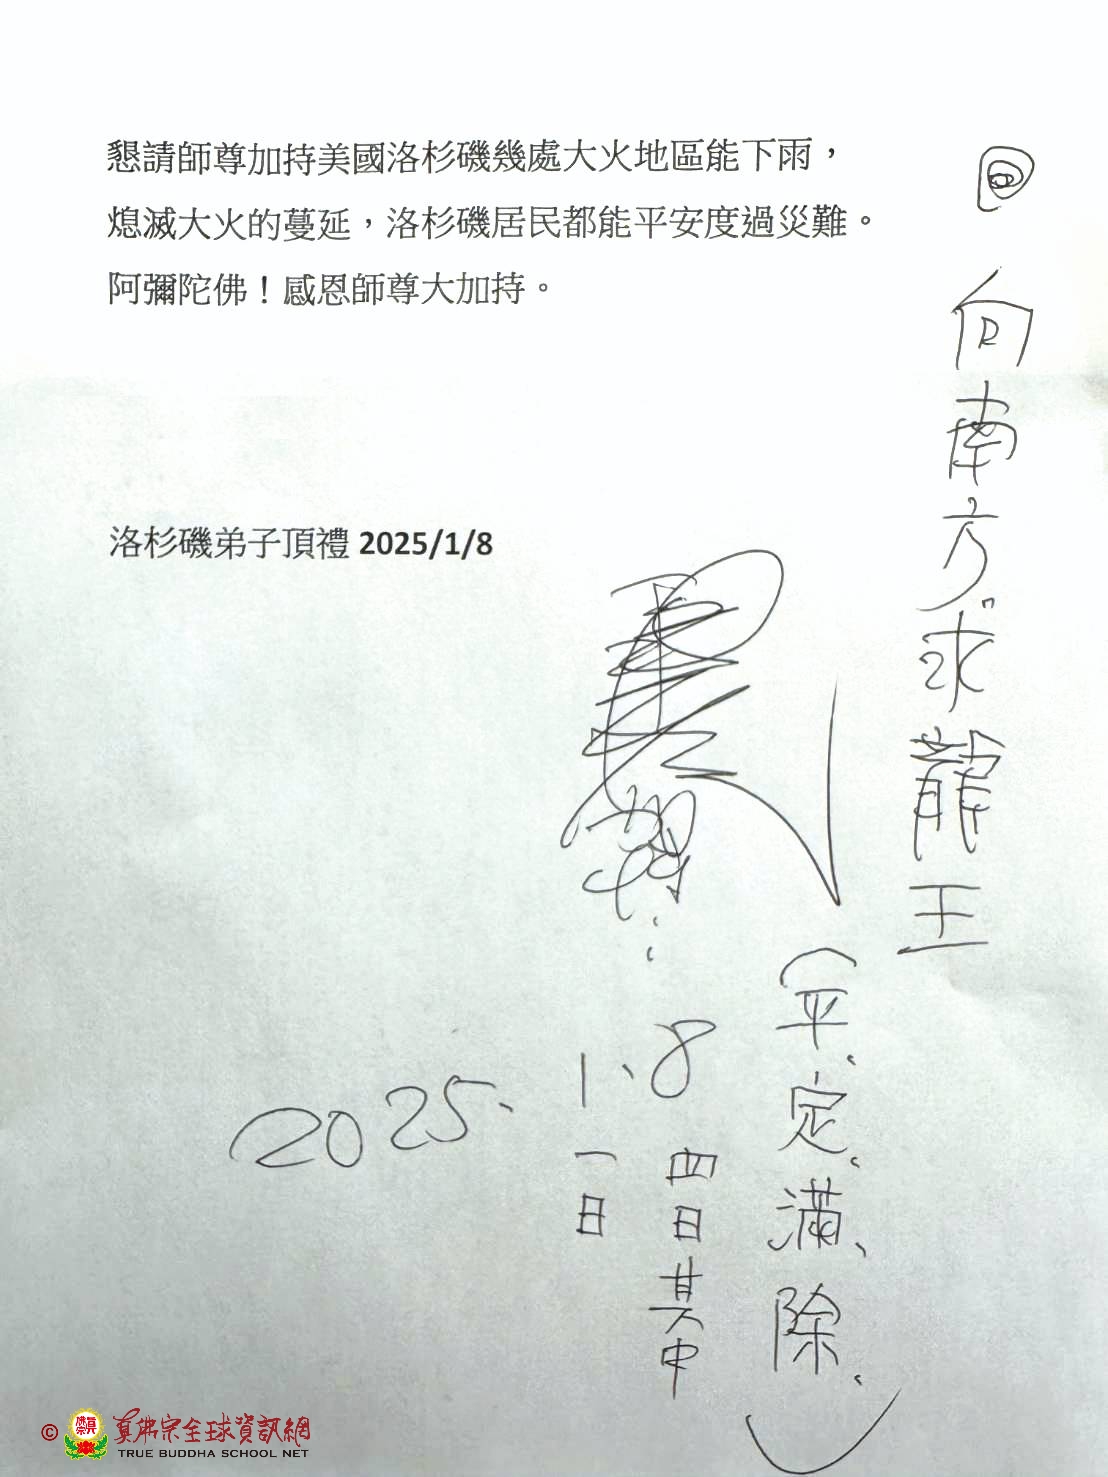 懇請師尊加持美國洛杉磯幾處大火地區能下雨，
熄滅大火的蔓延，洛杉磯居民都能平安度過災難。
阿彌陀佛！感恩師尊大加持。
洛杉磯弟子頂禮 2025/1/8
向南方求龍王
（平、定、滿、除、）
四日其中
一日
2025、1、8
© 真佛宗全球資訊網
TRUE BUDDHA SCHOOL NET